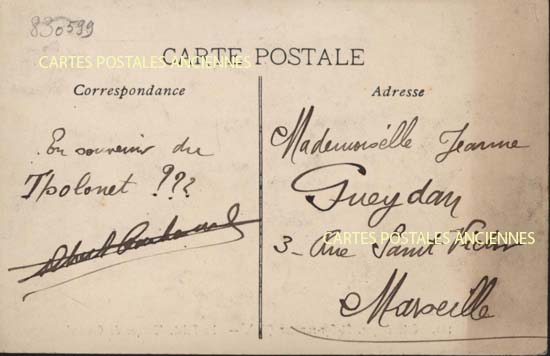 830599
CARTE POSTALE
CARTES POSTALES ANCIENNES
Correspondance
Adresse
En souvenir du
Tholonet ???
Mademoiselle Jeanne
Gueydan
3 - Rue Saint
CARTES POSTALES ANCIENNES
Marseille